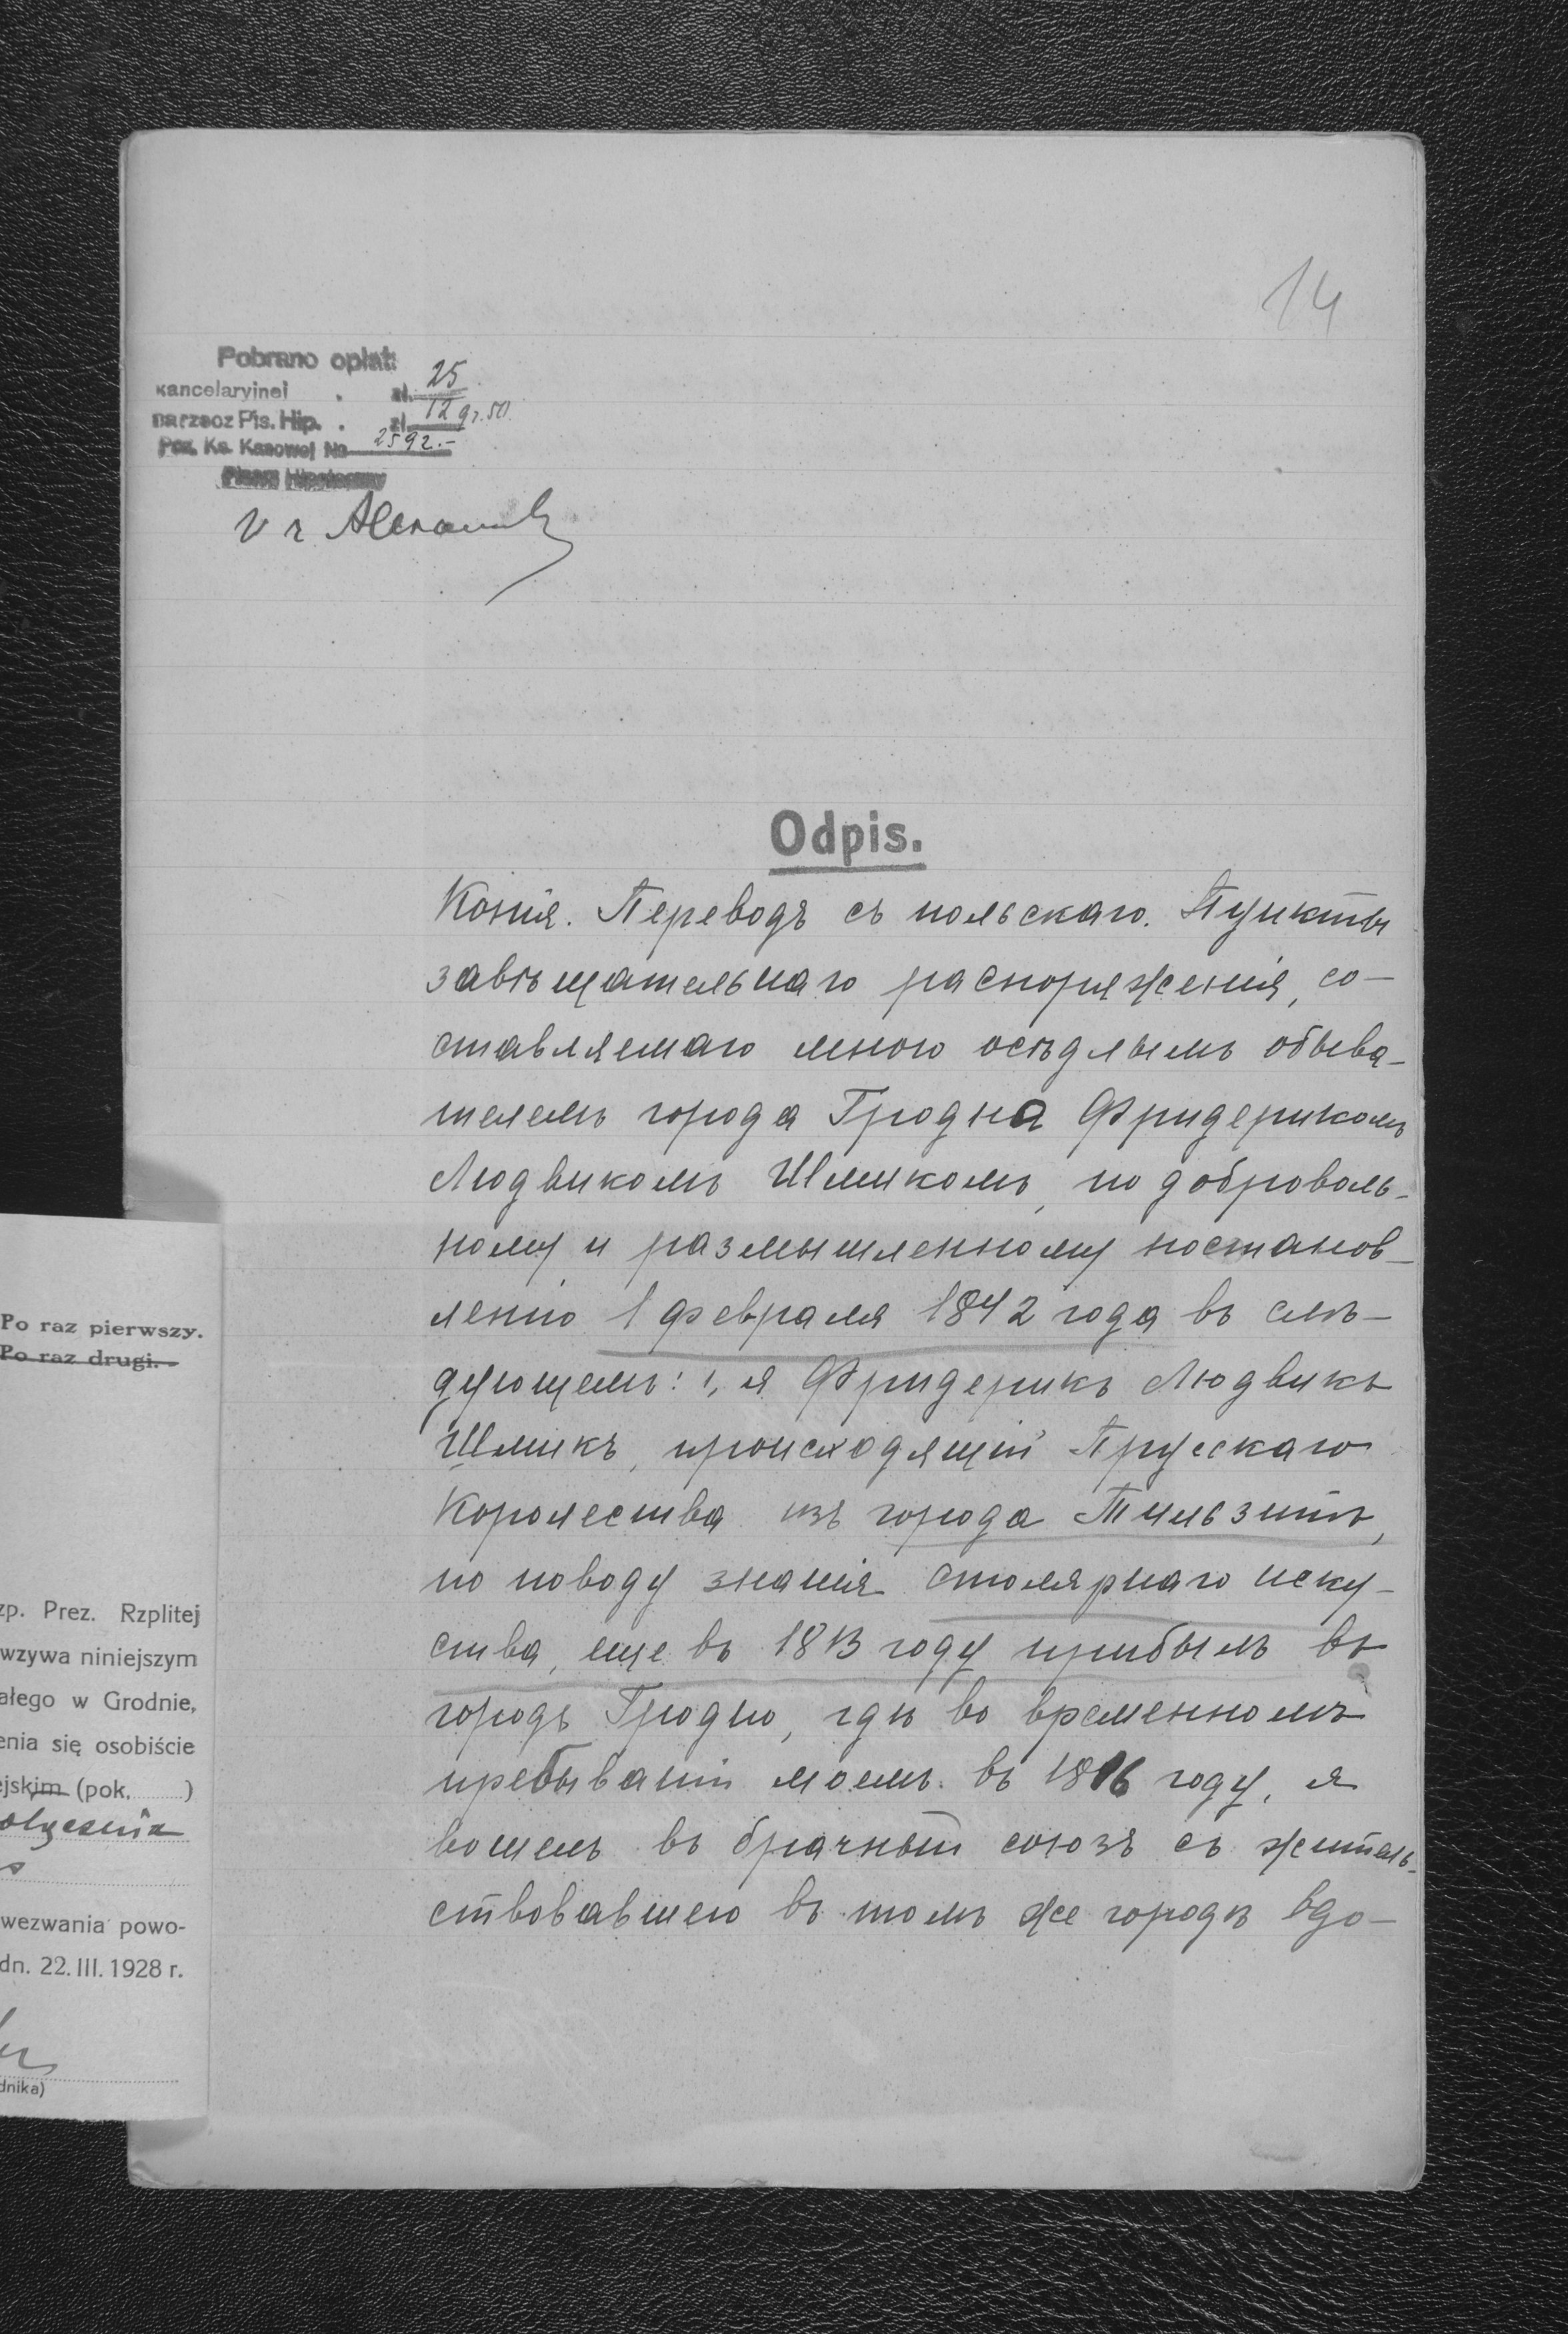 14
Pobrano opłat:
kancelaryjnej . zł. 25
na rzecz Pis. Hip. . zł. 12 gr. 50
Poz. Ks. Kasowej No 2592.-
Pisarz Hipoteczny
Odpis.
Копія. Переводъ съ польскаго. Пункты
завѣщательнаго распоряженія, со-
ставляемаго мною осѣдлымъ обыва-
телемъ города Гродна Фридерикомъ
Людвикомъ Шмикомъ, по доброволь-
ному и размышленному постанов-
ленію 1 февраля 1842 года въ слѣ-
дующемъ: 1, я Фридерикъ Людвикъ
Шмикъ, происходящій Прусскаго
Королества изъ города Тильзитъ,
по поводу знанія столярнаго иску-
ства, еще въ 1813 году прибылъ въ
городъ Гродно, гдѣ во временномъ
пребываніи моемъ въ 1816 году, я
вошелъ въ брачный союзъ съ житель-
ствовавшею въ томъ же городѣ вдо-
Po raz pierwszy.
Po raz drugi.-
zp. Prez. Rzplitej
wzywa niniejszym
ałego w Grodnie,
enia się osobiście
ejskim (pok. )
wezwania powo-
dn. 22. III. 1928 r.
dnika)